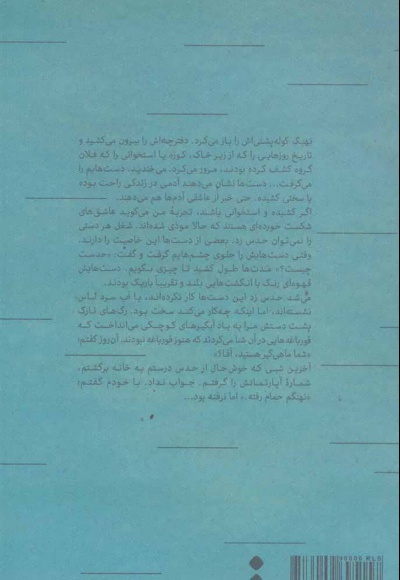 نهنگ کوله‌پشتی‌اش را باز می‌کرد. دفترچه‌اش را بیرون می‌کشید و
تاریخ روزهایی را که از زیر خاک، کوزه یا استخوانی را که فلان
گروه کشف کرده بودند، مرور می‌کرد. می‌خندیدند. دست‌هایم را
می‌گرفت... دست‌ها نشان می‌دهند آدمی در زندگی راحت بوده
یا سختی کشیده. حتی خبر از عاشقی آدم‌ها هم می‌دهند.
اگر کشیده و استخوانی باشند، تجربهٔ من می‌گوید عاشق‌های
شکست خورده‌ای هستند که حالا موذی شده‌اند. شغل هر دستی
را نمی‌توان حدس زد. بعضی از دست‌ها این خاصیت را دارند.
وقتی دست‌هایش را جلوی چشم‌هایم گرفت و گفت: «حدست
چیست؟» مدت‌ها طول کشید تا چیزی بگویم. دست‌هایش
قهوه‌ای رنگ با انگشت‌هایی بلند و تقریباً باریک بودند.
می‌شد حدس زد این دست‌ها کار نکرده‌اند، با آب سرد لباس
نشسته‌اند، اما اینکه چه‌کار می‌کند سخت بود. رگ‌های نازک
پشت دستش مرا به یاد آبگیرهای کوچکی می‌انداخت که
قورباغه‌هایی در آن شنا می‌کردند که هنوز قورباغه نبودند. آن روز گفتم:
«شما ماهی‌گیر هستید، آقا؟»
آخرین شبی که خوش‌حال از حدس درستم به خانه برگشتم،
شمارهٔ آپارتمانش را گرفتم. جواب نداد. با خودم گفتم:
«نهنگم حمام رفته.» اما نرفته بود...